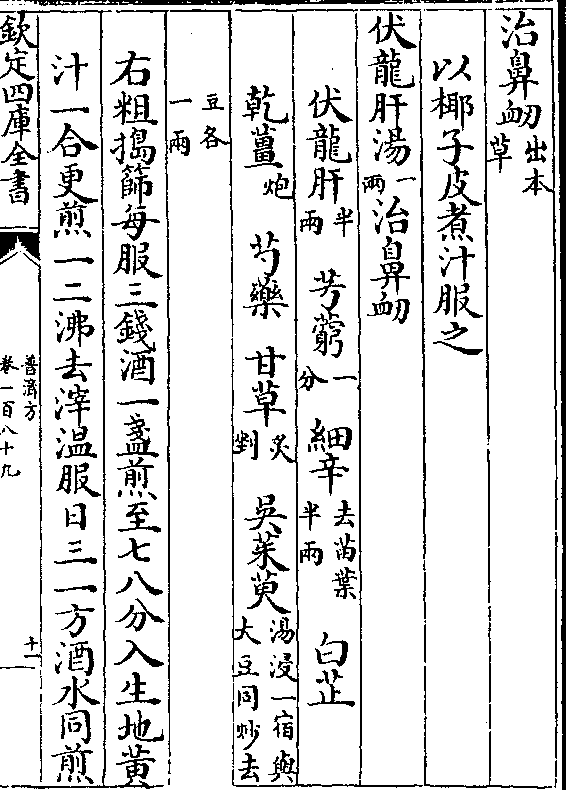 治鼻衂出本草
以椰子皮煮汁服之
伏龍肝湯一兩治鼻衂
伏龍肝半兩 芎藭一分 細辛去苗葉半兩 白芷
乾薑炮 芍藥 甘草炙剉 吳茱萸湯浸一宿與大豆同炒去
豆各一兩
右粗搗篩每服三錢酒一盞煎至七八分入生地黄
汁一合更煎一二沸去滓温服日三一方酒水同煎
欽定四庫全書
普濟方
卷一百八十九
十一